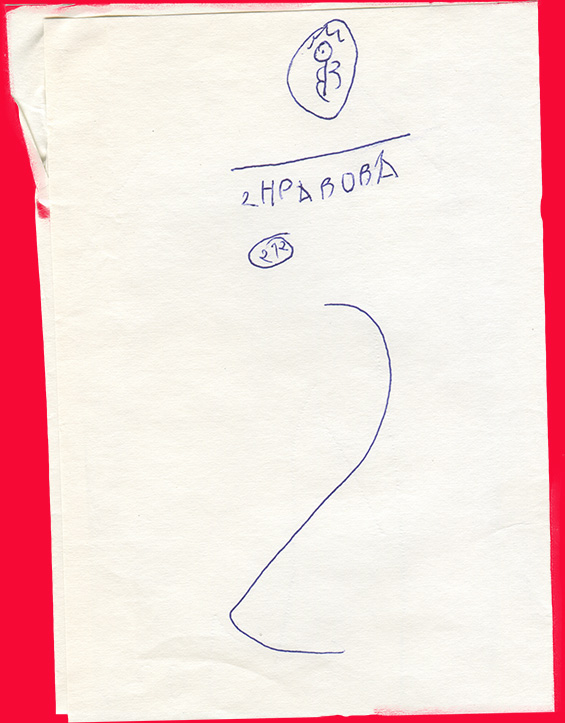 2НРАВОВА
212
2